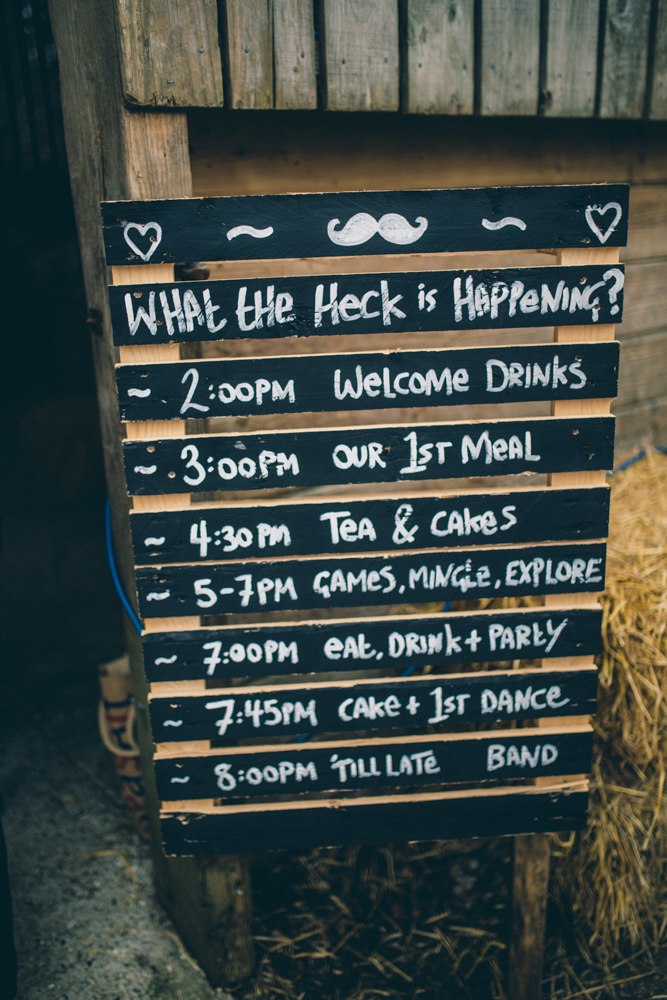 WHAt tHe HecK is HAPPeNiNG?
~ 2:00PM WelcoMe DRiNKS
~ 3:00PM OUR 1ST MeAL
~ 4:30PM TeA & CAKeS
~ 5-7PM GAMES, MiNGLE, EXPLORE
~ 7:00PM eAt, DRiNK + PARTY
~ 7:45PM CAKe + 1ST DANCE
~ 8:00PM 'TiLL LATE BAND